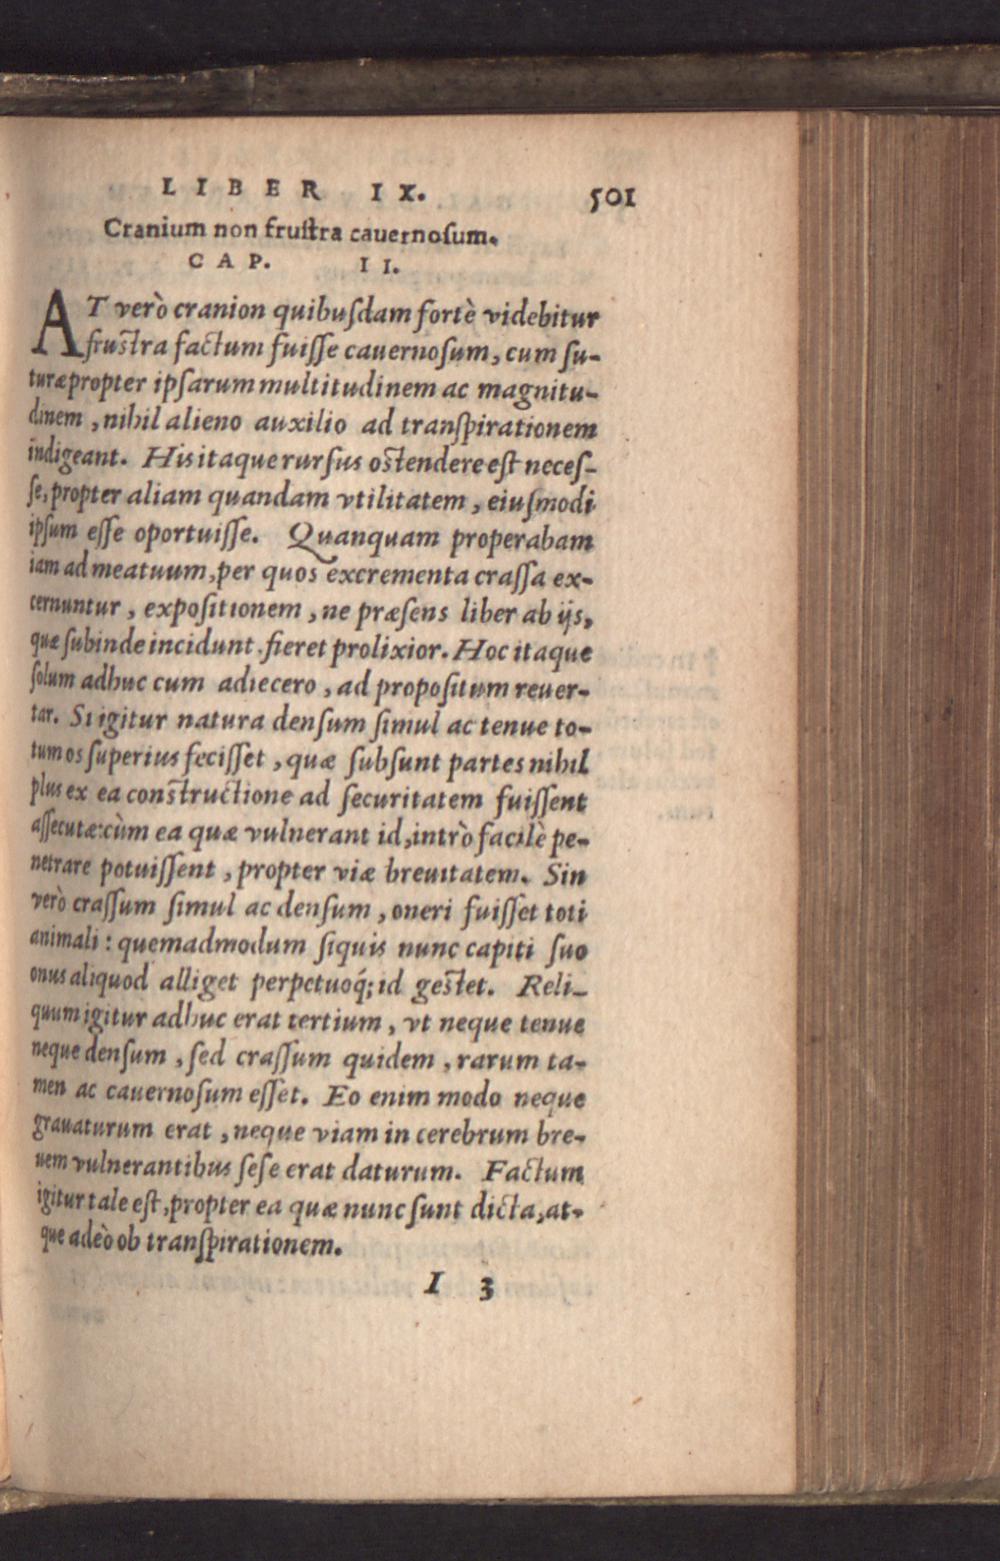 LIBER IX. 501
Cranium non fruſtra cauernoſum.
CAP. II.
AT verò cranion quibuſdam fortè videbitur
fruſtra factum fuiſſe cauernoſum, cum ſu-
turæ propter ipſarum multitudinem ac magnitu-
dinem, nihil alieno auxilio ad tranſpirationem
indigeant. His itaque rurſus oſtendere eſt neceſ-
ſe, propter aliam quandam vtilitatem, eiuſmodi
ipſum eſſe oportuiſſe. Quanquam properabam
iam ad meatuum, per quos excrementa craſſa ex-
cernuntur, expoſitionem, ne præſens liber ab ijs,
quæ ſubinde incidunt fieret prolixior. Hoc itaque
ſolum adhuc cum adiecero, ad propoſitum reuer-
tar. Si igitur natura denſum ſimul ac tenue to-
tum os ſuperius feciſſet, quæ ſubſunt partes nihil
plus ex ea conſtructione ad ſecuritatem fuiſſent
aſſecutæ: cùm ea quæ vulnerant id, intrò facilè pe-
netrare potuiſſent, propter viæ breuitatem. Sin
verò craſſum ſimul ac denſum, oneri fuiſſet toti
animali: quemadmodum ſiquis nunc capiti ſuo
onus aliquod alliget perpetuoq́; id geſtet. Reli-
quum igitur adhuc erat tertium, vt neque tenue
neque denſum, ſed craſſum quidem, rarum ta-
men ac cauernoſum eſſet. Eo enim modo neque
grauaturum erat, neque viam in cerebrum bre-
uem vulnerantibus ſeſe erat daturum. Factum
igitur tale eſt, propter ea quæ nunc ſunt dicta, at-
que adeò ob tranſpirationem.
I 3